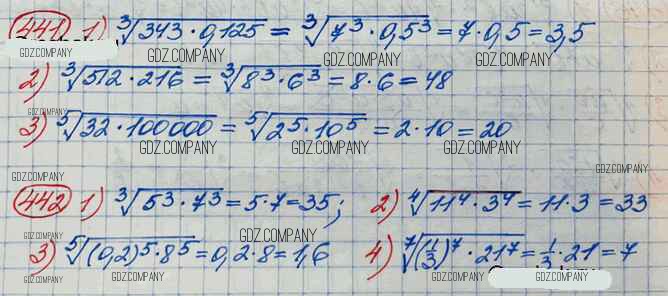 441 1) ³√343·0,125 = ³√7³·0,5³ = 7·0,5 = 3,5
GDZ.COMPANY GDZ.COMPANY GDZ.COMPANY GDZ.COMPANY
2) ³√512·216 = ³√8³·6³ = 8·6 = 48
GDZ.COMPANY
3) ⁵√32·100000 = ⁵√2⁵·10⁵ = 2·10 = 20
GDZ.COMPANY GDZ.COMPANY GDZ.COMPANY
GDZ.COMPANY GDZ.COMPANY
442 1) ³√5³·7³ = 5·7 = 35; 2) ⁴√11⁴·3⁴ = 11·3 = 33
GDZ.COMPANY GDZ.COMPANY
3) ⁵√(0,2)⁵·8⁵ = 0,2·8 = 1,6 4) ⁷√(1/3)⁷·21⁷ = 1/3·21 = 7
GDZ.COMPANY GDZ.COMPANY GDZ.COMPANY